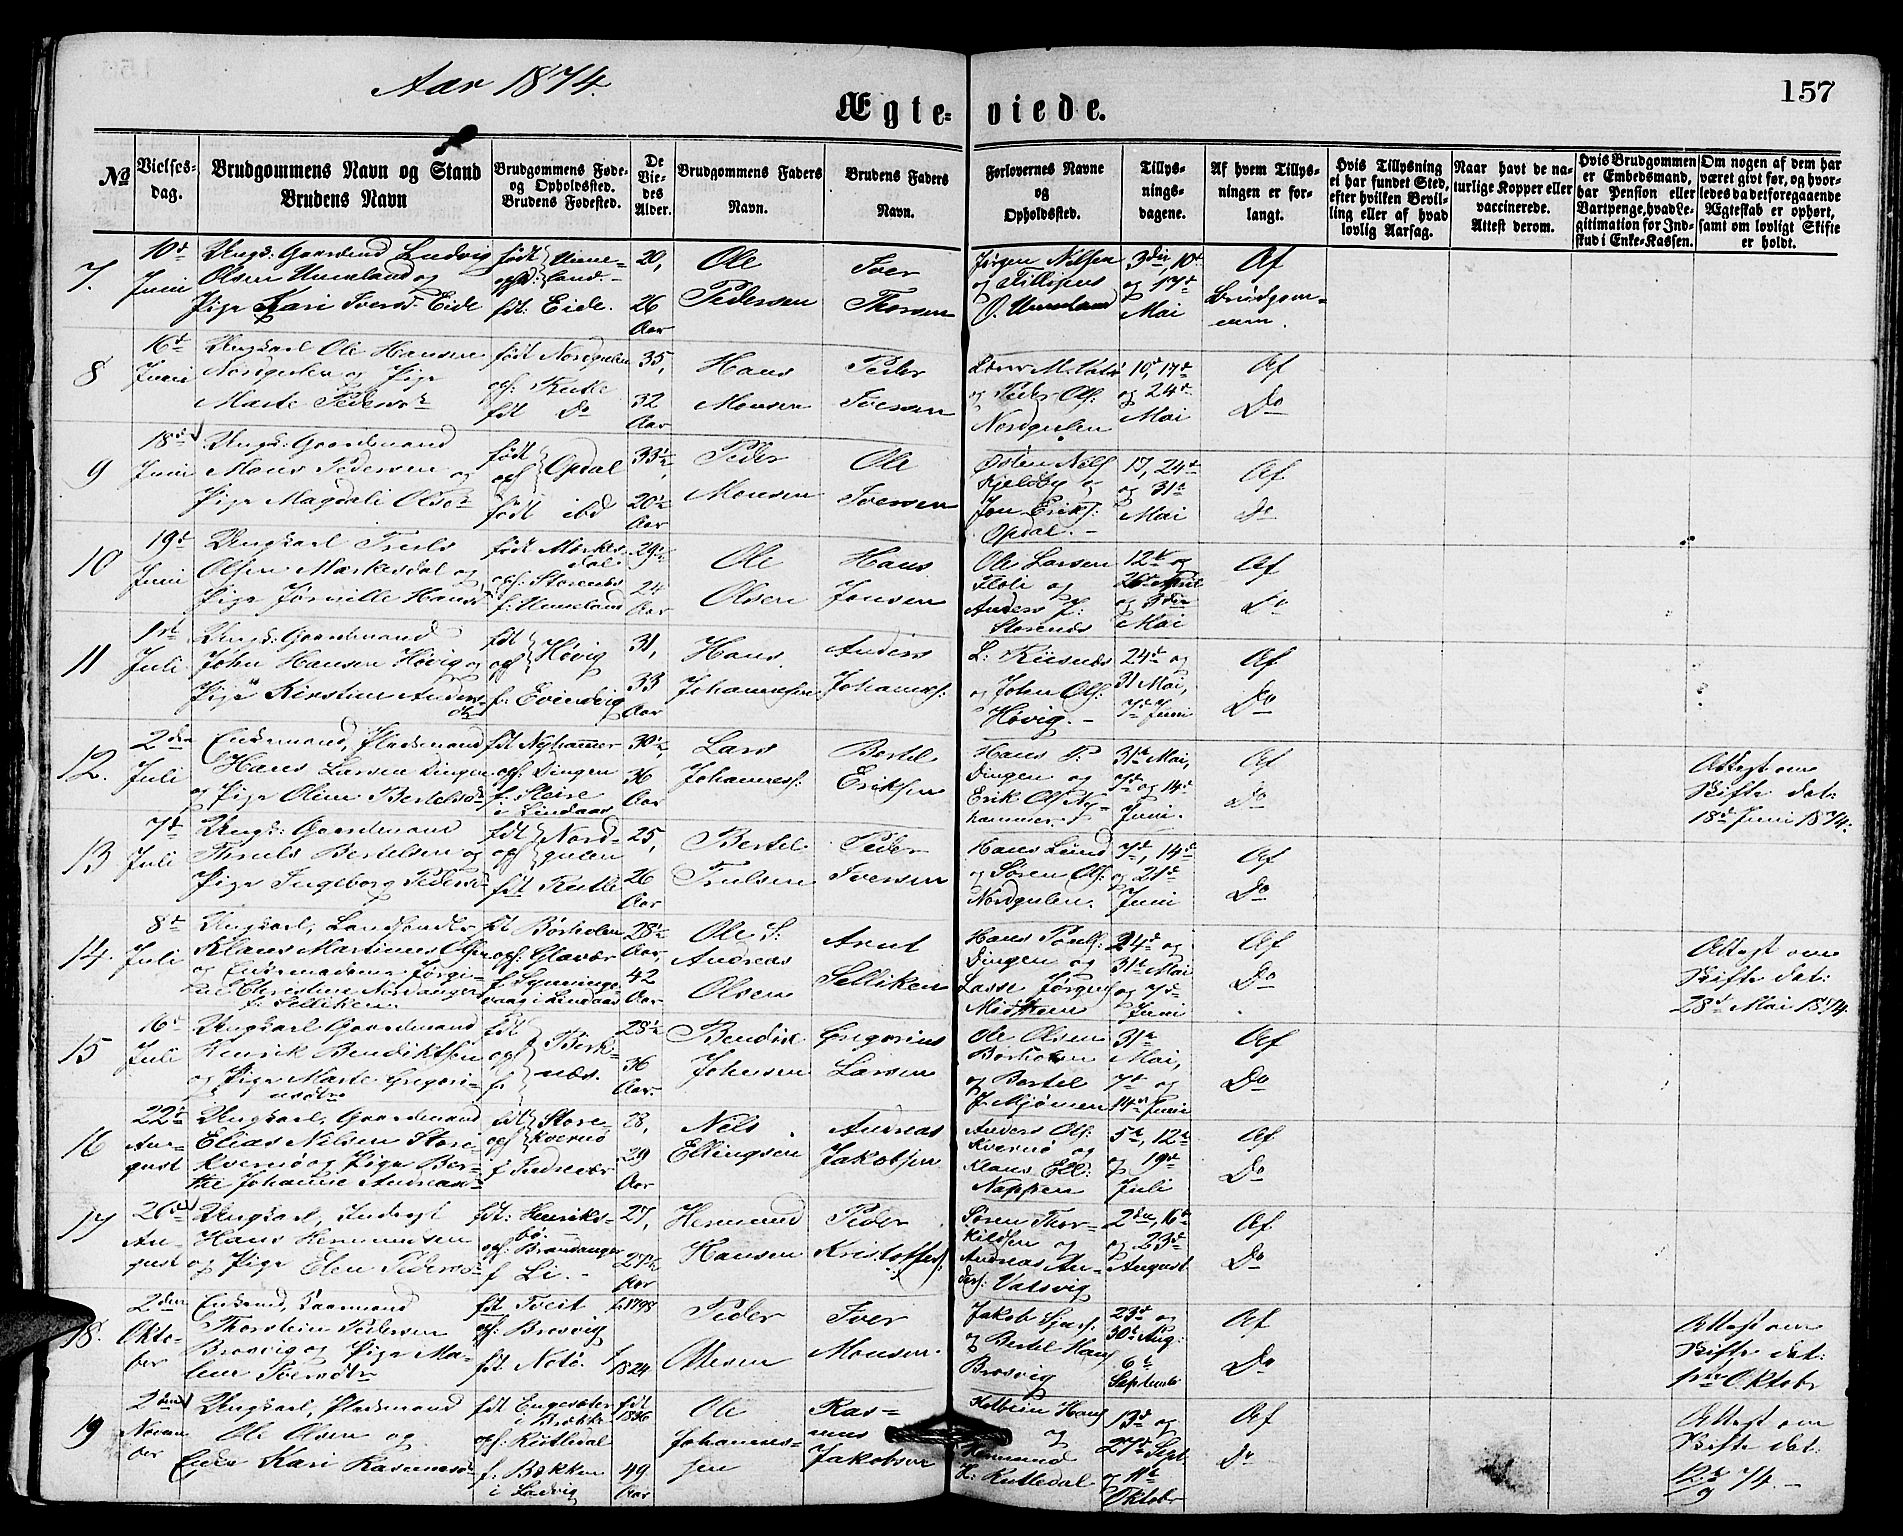 Aar 1874.
157
Ægteviede.
No
Vielsesdag.
Brudgommens Navn og Stand
Brudens Navn
Brudgommens Føde-
og Opholdssted.
Brudens Fødested.
De
Vie-
des
Alder.
Brudgommens Faders
Navn.
Brudens Faders
Navn.
Forlovernes Navne
og
Opholdssted.
Tillys-
nings-
dagene.
Af hvem Tillys-
ningen er for-
langt.
Hvis Tillysning
ei har fundet Sted,
efter hvilken Bevil-
ling eller af hvad
lovlig Aarsag.
Naar havt de na-
turlige Kopper eller
vaccinerede.
Attest derom.
Hvis Brudgommen
er Embedsmand,
har Pension eller
Vartpenge, hvad Le-
gitimation for Ind-
skud i Enke-Kassen.
Om nogen af dem har
været givt før, og hvor-
ledes da det foregaaende
Ægteskab er ophørt,
samt om lovligt Skifte
er holdt.
7.
10d
Juni
Ungk: Gaardmd Ludvig
Olsen Unneland og
Pige Kari Iversd. Eide
født
opd:
Unne-
land.
fdt: Eide.
20,
26
Aar
Ole
Pedersen
Iver
Thorsen
Jørgen Nilsen
og Fillipus
O. Unneland
3die, 10d
og 17d
Mai
Af
Brudgom-
men.
8
16d
Juni
Ungkarl Ole Hansen
Nordgulen og Pige
Marte Pedersdr
født Nordgulen
opf: Rutle
fdt Do
35,
32
Aar
Hans
Monsen
Peder
Iversen
og Peder Ols:
Nordgulen
10, 17d
og 24d
Mai
Af
Do
9
18d
Juni
Ungk: Gaardmand
Mons Pedersen og
Pige Magdali Olsdr
født
opf
Opdal
født ibd
33½
20½
Aar
Peder
Monsen
Ole
Iversen
Østen Nils
Kjeldby og
Jon Eriks:
Opdal. -
17, 24d
og 31d
Mai
Af
Do
10
19d
Juni
Ungkarl Truls
Olsen Mørkesdal og
Pige Jørnille Hansd
født Mørkes
dal
opf: Storenes
f: Unneland
29½
24
Aar
Ole
Olsen
Hans
Jonsen
Ole Larsen
Floli og
Anders J:
Storenes
12d og
26d April
og 3die
Mai
Af
Do
11
1ste
Juli
Ungk: Gaardmand
John Hansen Høvig og
Pige Kirstine Anders
dtr
fdt
opf
Høvig
f: Evindvig
31,
33
Aar
Hans
Johannesen
Anders
Johannes:
L: Riisnes
og John Ols:
Høvig. -
24d og
31 Mai,
7d Juni
Af
Do
12.
2den
Juli
Enkemand, Pladsmand
Hans Larsen Dingen
og Pige Oline Bertelsdr
fdt Nyhammer
opf: Dingen
f. Fleire
i Lindaas
30½
36
Aar
Lars
Johannes:
Bertel
Eriksen
Hans P:
Dingen og
Erik Ols Ny-
hammer
31d Mai,
7d og 14d
Juni.
Af
Do
Attest om
Skifte dat:
18d Juni 1874.
13
7d
Juli
Ungk: Gaardmand
Thruls Bertelsen og
Pige Ingeborg Pedersdr
fdt
opf
Nord-
gulen
fdt Rutle
25,
26
Aar
Bertel
Trulsen
Peder
Iversen
Hans Lund
og Søren Ols:
Nordgulen.
7d, 14d
og 21d
Juni
Af
Do
14.
8d
Juli
Ungkarl, Landhandler
Klaus Martinus Olsen
og Enkemadame Jørgi-
ne Christine Nordanger
f. Selliken
fdt Børholm
opf: Glavær
28½
Aar
42
Aar
Ole S:
Andreas
Olsen
Arnt
Selliken
Hans Pouls:
Dingen og
Lasse Jørgens
24d og
31d Mai
og 7d
Juni
Af
Do
Attest om
Skifte dat:
28d Mai 1874.
15
16d
Juli
Ungkarl Gaardmand
Henrik Bendiktsen
og Pige Marte Gregori-
usdtr
fdt
opf
f.
Birke-
næs.
28½
36
Aar.
Bendix
Johnsen
Gregorius
Larsen
Ole Olsen
Børholm
og Bertel
J. Mjømen
31d
Mai,
7d og
14d Juni
Af
Do
16
22d
Au-
gust
Ungkarl, Gaardmand
Elias Nilsen Store-
Kvernø og Pige Ber-
the Johanne Andreasd
fdt
opf
Store-
Kvernø
f. Indrevær
28,
29
Aar
Nils
Ellingsen
Andreas
Jakobsen
Anders Ols:
Kvernø og
Klaus Ell:
Nappen
5d, 12d
og 19d
Juli
Af
Do
17
26d
Au-
gust
Ungkarl, Inderst
Hans Hermundsen
og Pige Elen Pedersdr
fdt: Henriks-
bø.
opf: Brandanger
f. Li. -
27,
27½
Aar
Hermund
Hansen
Peder
Kristoffers:
Søren Thor-
kildsen og
Andreas An-
ders: Vatsvig
2den, 16d
og 23d
August
Af
Do
18.
2den
Okto-
ber
Enkemd, Kaarmand
Thorstein Pedersen
Brosvig og Pige Ma-
lene Iversdtr
fdt Tveit
opf: Brosvig
fdt. Notø.
f. 1798
f
1824
Peder
Olsen
Iver
Monsen
Jakob Sjurs:
og Bertel Hans
Brosvig
23d og
30d Aug:
6d
Septembr
Af
Do
Attest om
Skifte dat:
1ste Oktobr
19
2den
Novem
ber
Ungkarl, Pladsmand
Ole Olsen og
Enke Kari Rasmusdr
fdt Engesæter
i Brække
opf: Rutledal
f: Bakken
i Ladvig
fdt
1836
49
Aar
Ole
Johannes-
sen
Ras-
mus
Jakobsen
Kolbein Hans
og
Hermund
H: Rutledal
13d og
27d Sept.
og 11d
Oktobr
Af
Do
Attest om
Skifte dat:
12/9 74. -